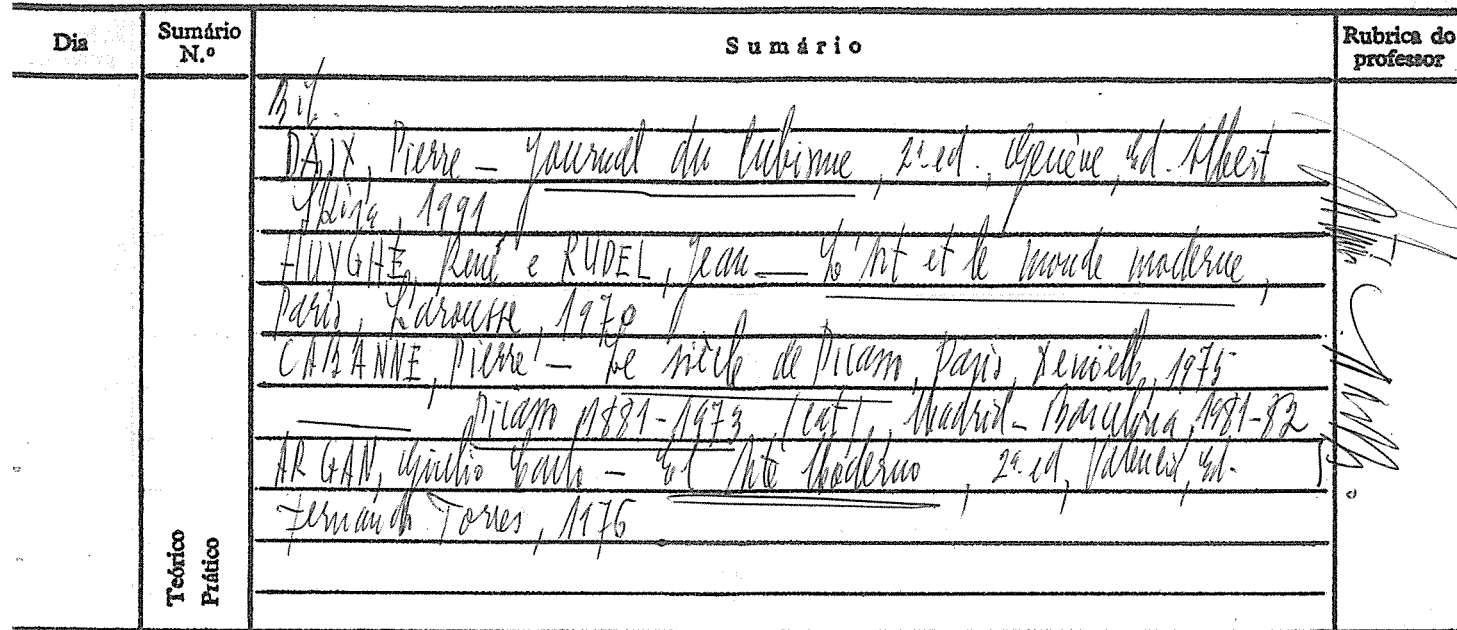 Dia
Sumário N.º
Sumário
Rubrica do professor
Bib.
DAIX, Pierre — Journal du Cubisme, 2ª ed., Genève, Ed. Albert
Skira, 1991
HUYGHE, René e RUDEL, Jean — L'Art et le monde moderne,
Paris, Larousse, 1970
CABANNE, Pierre — Le siècle de Picasso, Paris, Denoël, 1975
Picasso 1881-1973 (cat), Madrid-Barcelona, 1981-82
ARGAN, Giulio Carlo — El Arte Moderno, 2ª ed, Valencia, Ed.
Fernando Torres, 1976
Teórico
Prático